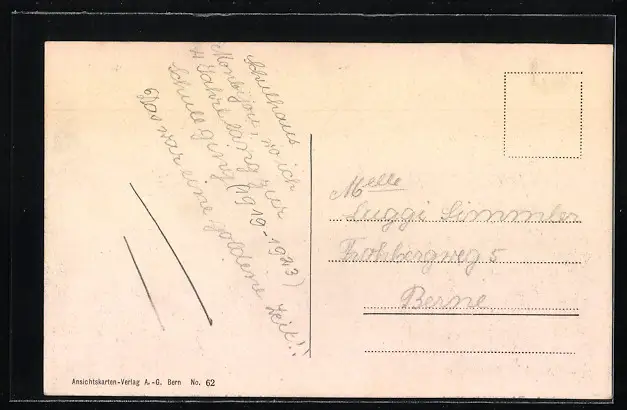 Schulhaus
Monbijou, wo ich
4 Jahre lang zur
Schule ging (1919-1923)
Das war eine goldene Zeit!!
Melle
Luggi Simmler
Frohbergweg 5
Berne
Ansichtskarten-Verlag A.-G. Bern No. 62